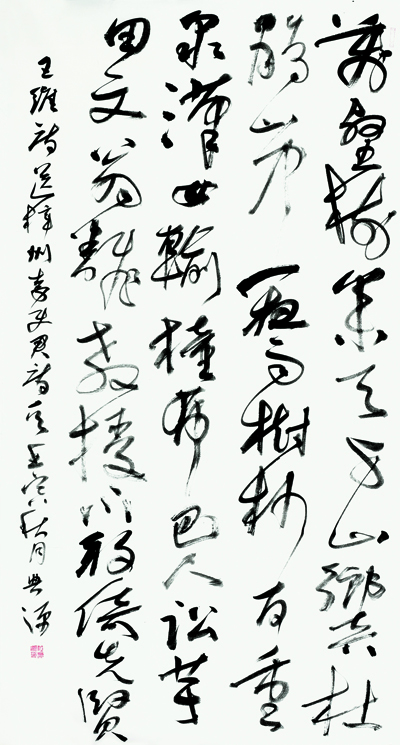 萬壑樹參天千山響杜
鵑山中一夜雨樹杪百重
泉漢女輸橦布巴人訟芋
田文翁翻教授不敢倚先賢
王維詩送梓州李使君詩 壬寅秋月